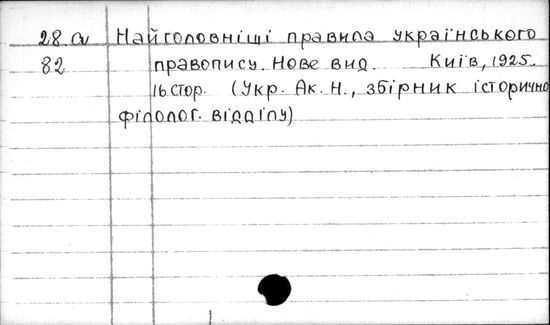 28.а Найголовніщі правила українського
82 правопису. Нове вид. Київ, 1925.
16 стор. (Укр. Ак. Н., збірник історично
філолог. відділу)